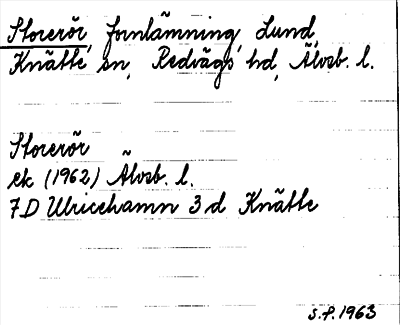 Storerör, fornlämning, Lund,
Knätte sn, Redvägs hd, Älvsb. l.
Storerör
ek (1962) Älvsb. l.
7D Ulricehamn 3 d Knätte
S.P. 1963